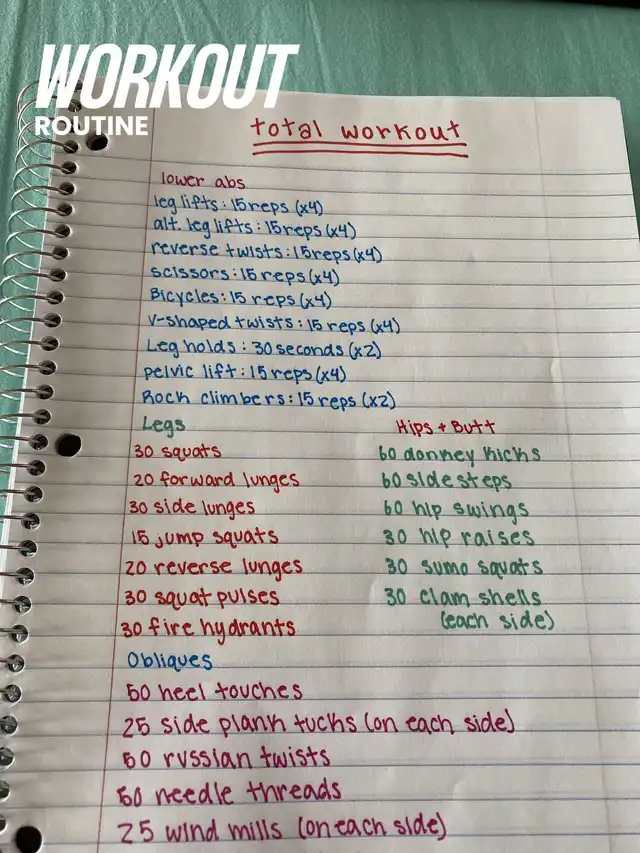 WORKOUT
ROUTINE
total workout
lower abs
leg lifts: 15 reps (x4)
alt. leg lifts: 15 reps (x4)
reverse twists: 15 reps (x4)
scissors: 15 reps (x4)
Bicycles: 15 reps (x4)
V-shaped twists: 15 reps (x4)
Leg holds: 30 seconds (x2)
pelvic lift: 15 reps (x4)
Rock climbers: 15 reps (x2)
Legs
30 squats
20 forward lunges
30 side lunges
15 jump squats
20 reverse lunges
30 squat pulses
30 fire hydrants
Hips + Butt
60 donkey kicks
60 side steps
60 hip swings
30 hip raises
30 sumo squats
30 clam shells
(each side)
Obliques
50 heel touches
25 side plank tucks (on each side)
50 russian twists
50 needle threads
25 wind mills (on each side)